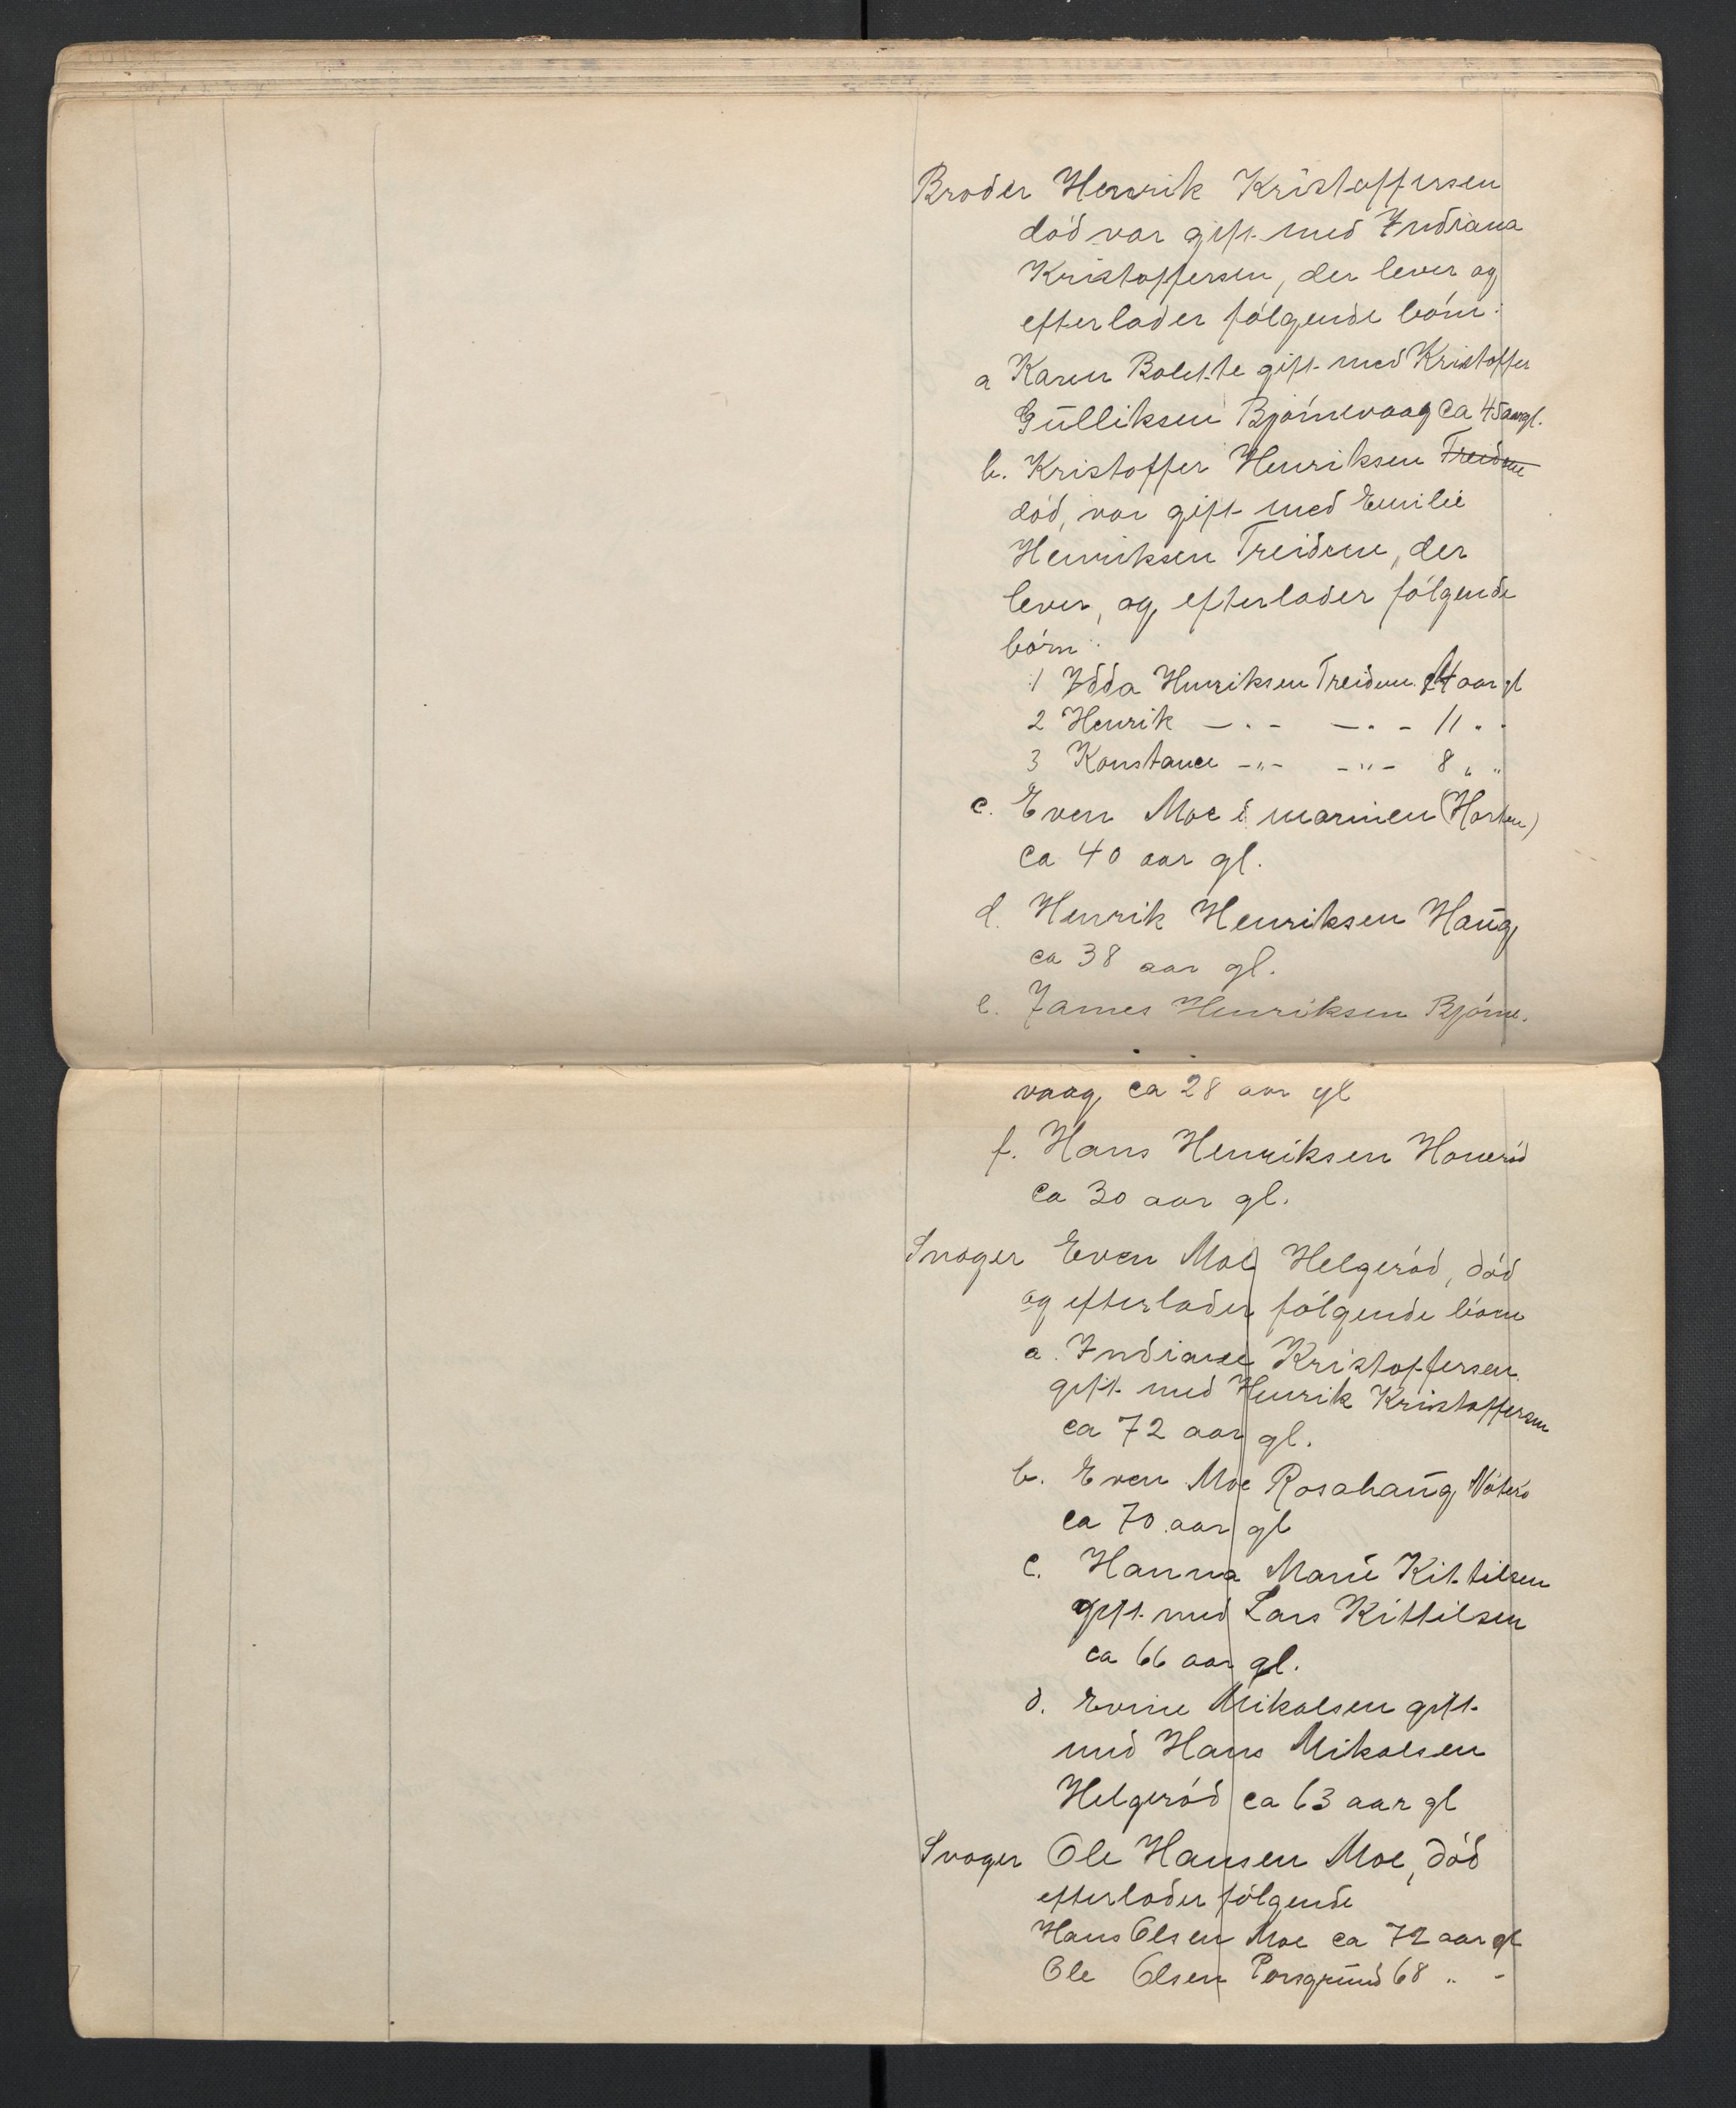 Broder Henrik Kristoffersen
död var gift med Indiana
Kristoffersen, der lever og
efterlader fölgende börn:
a Karen Bolette gift med Kristoffer
Gulliksen Björnevaag ca 45 aar gl.
b. Kristoffer Henriksen Treidene
död, var gift med Emilie
Henriksen Treidene, der
lever, og efterlader fölgende
börn:
1 Idda Henriksen Treidene 14 aar gl
2 Henrik —.- —.- 11 . .
3 Konstance -„- -„- 8 „ „
c. Even Moe i marinen (Horten)
ca 40 aar gl.
d. Henrik Henriksen Haug
ca 38 aar gl.
e. James Henriksen Björne-
vaag ca 28 aar gl
f. Hans Henriksen
ca 30 aar gl.
Svoger Even Moe Helgeröd, död
og efterlader fölgende börn
a. Indiane Kristoffersen
gift med Henrik Kristoffersen
ca 72 aar gl.
b. Even Moe Rosahaug Nöterö
ca 70 aar gl
c. Hanna Marie Kittilsen
gift med Lars Kittilsen
ca 66 aar gl.
d. Evine Mikalsen gift
med Hans Mikalsen
Helgeröd ca 63 aar gl
Svoger Ole Hansen Moe, död
efterlader fölgende
Hans Olsen Moe ca 72 aar gl
Ole Olsen Porsgrund 68 „ -